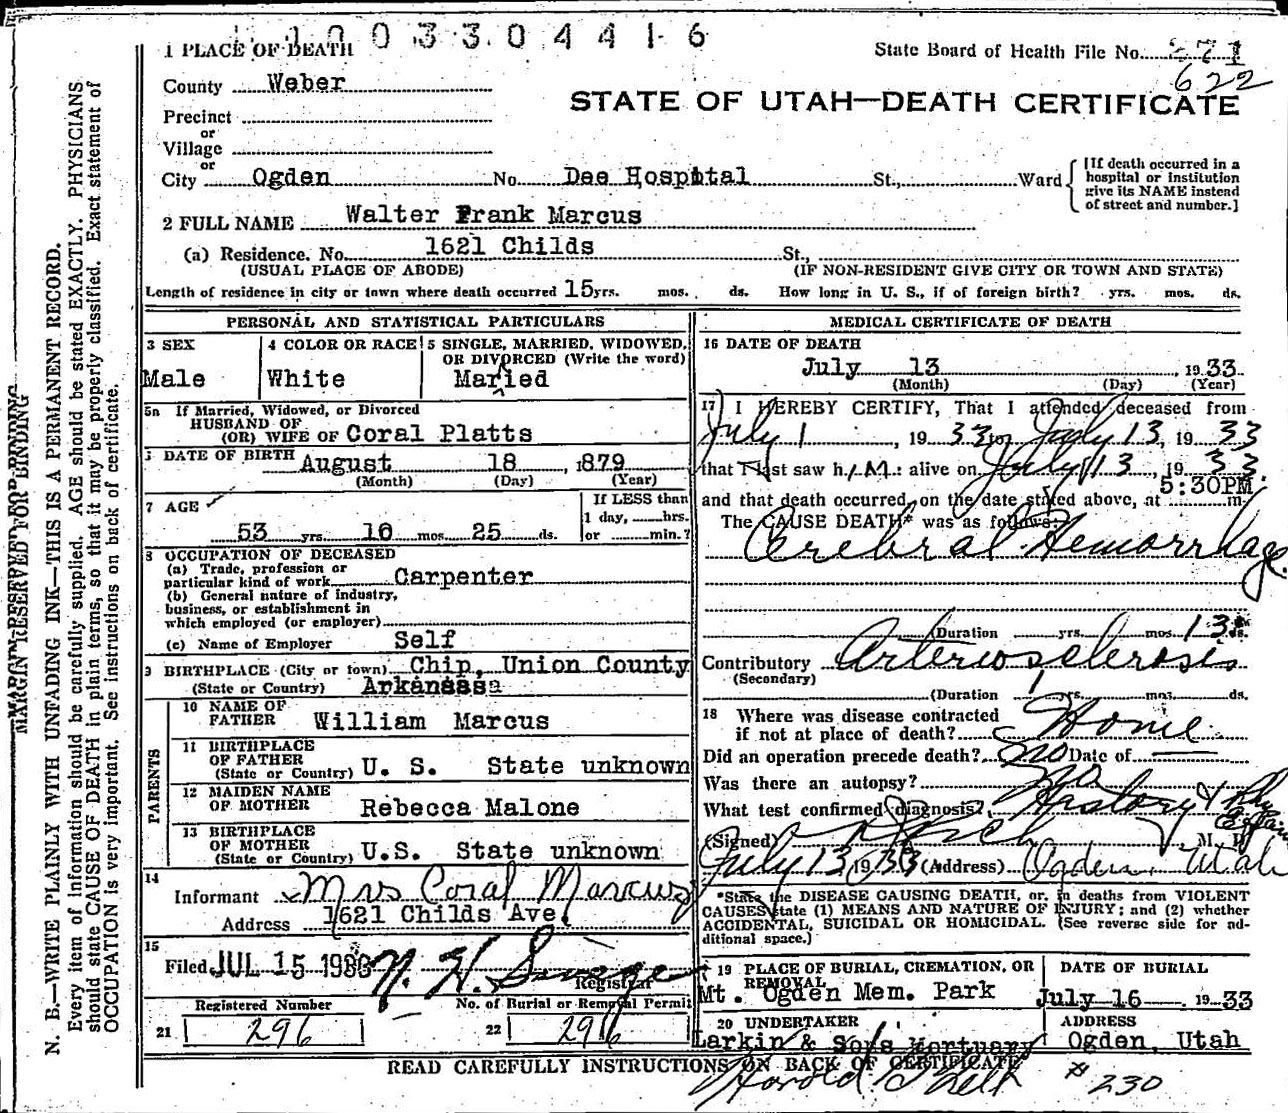 1 1 0 0 3 3 0 4 4 1 6
1 PLACE OF DEATH
State Board of Health File No. 271
622
County Weber
STATE OF UTAH—DEATH CERTIFICATE
Precinct
or
Village
or
City Ogden No. Dee Hospital St., Ward
[If death occurred in a hospital or institution give its NAME instead of street and number.]
2 FULL NAME Walter Frank Marcus
(a) Residence. No. 1621 Childs St.,
(USUAL PLACE OF ABODE) (IF NON-RESIDENT GIVE CITY OR TOWN AND STATE)
Length of residence in city or town where death occurred 15 yrs. mos. ds. How long in U. S., if of foreign birth? yrs. mos. ds.
PERSONAL AND STATISTICAL PARTICULARS
3 SEX
Male
4 COLOR OR RACE
White
5 SINGLE, MARRIED, WIDOWED,
OR DIVORCED (Write the word)
Maried
5a If Married, Widowed, or Divorced
HUSBAND OF
(OR) WIFE OF Coral Platts
DATE OF BIRTH August 18 , 1879
(Month) (Day) (Year)
7 AGE
53 yrs. 10 mos. 25 ds.
If LESS than
1 day, hrs.
or min.?
8 OCCUPATION OF DECEASED
(a) Trade, profession or
particular kind of work Carpenter
(b) General nature of industry,
business, or establishment in
which employed (or employer)
(c) Name of Employer Self
9 BIRTHPLACE (City or town) Chip, Union County
(State or Country) Arkansas
PARENTS
10 NAME OF
FATHER William Marcus
11 BIRTHPLACE
OF FATHER
(State or Country) U. S. State unknown
12 MAIDEN NAME
OF MOTHER Rebecca Malone
13 BIRTHPLACE
OF MOTHER
(State or Country) U.S. State unknown
14
Informant Mrs Coral Marcus
Address 1621 Childs Ave.
15
Filed JUL 15 193
Registrar
Registered Number
21 296
No. of Burial or Removal Permit
22 296
MEDICAL CERTIFICATE OF DEATH
16 DATE OF DEATH
July 13 , 1933
(Month) (Day) (Year)
17 I HEREBY CERTIFY, That I attended deceased from
July 1 , 1933 to July 13, 1933
that I last saw him alive on July 13, 1933.
and that death occurred, on the date stated above, at 5:30PM. m.
The CAUSE DEATH* was as follows:
Cerebral Hemorrhage.
(Duration yrs. mos. 13 ds.
Contributory Arteriosclerosis
(Secondary)
(Duration 1 yrs. mos. ds.
18 Where was disease contracted
if not at place of death? Home.
Did an operation precede death? no Date of
Was there an autopsy? No
What test confirmed diagnosis? History &
(Signed) M. D.
July 13 1933 (Address) Ogden, Utah
*State the DISEASE CAUSING DEATH, or, in deaths from VIOLENT
CAUSES state (1) MEANS AND NATURE OF INJURY; and (2) whether
ACCIDENTAL, SUICIDAL OR HOMICIDAL. (See reverse side for ad-
ditional space.)
19 PLACE OF BURIAL, CREMATION, OR
REMOVAL
Mt. Ogden Mem. Park
DATE OF BURIAL
July 16 1933
20 UNDERTAKER
Larkin & Sons Mortuary
ADDRESS
Ogden, Utah
READ CAREFULLY INSTRUCTIONS ON BACK OF CERTIFICATE
Harold # 230
MARGIN RESERVED FOR BINDING
N. B.—WRITE PLAINLY WITH UNFADING INK—THIS IS A PERMANENT RECORD.
Every item of information should be carefully supplied. AGE should be stated EXACTLY. PHYSICIANS
should state CAUSE OF DEATH in plain terms, so that it may be properly classified. Exact statement of
OCCUPATION is very important. See instructions on back of certificate.